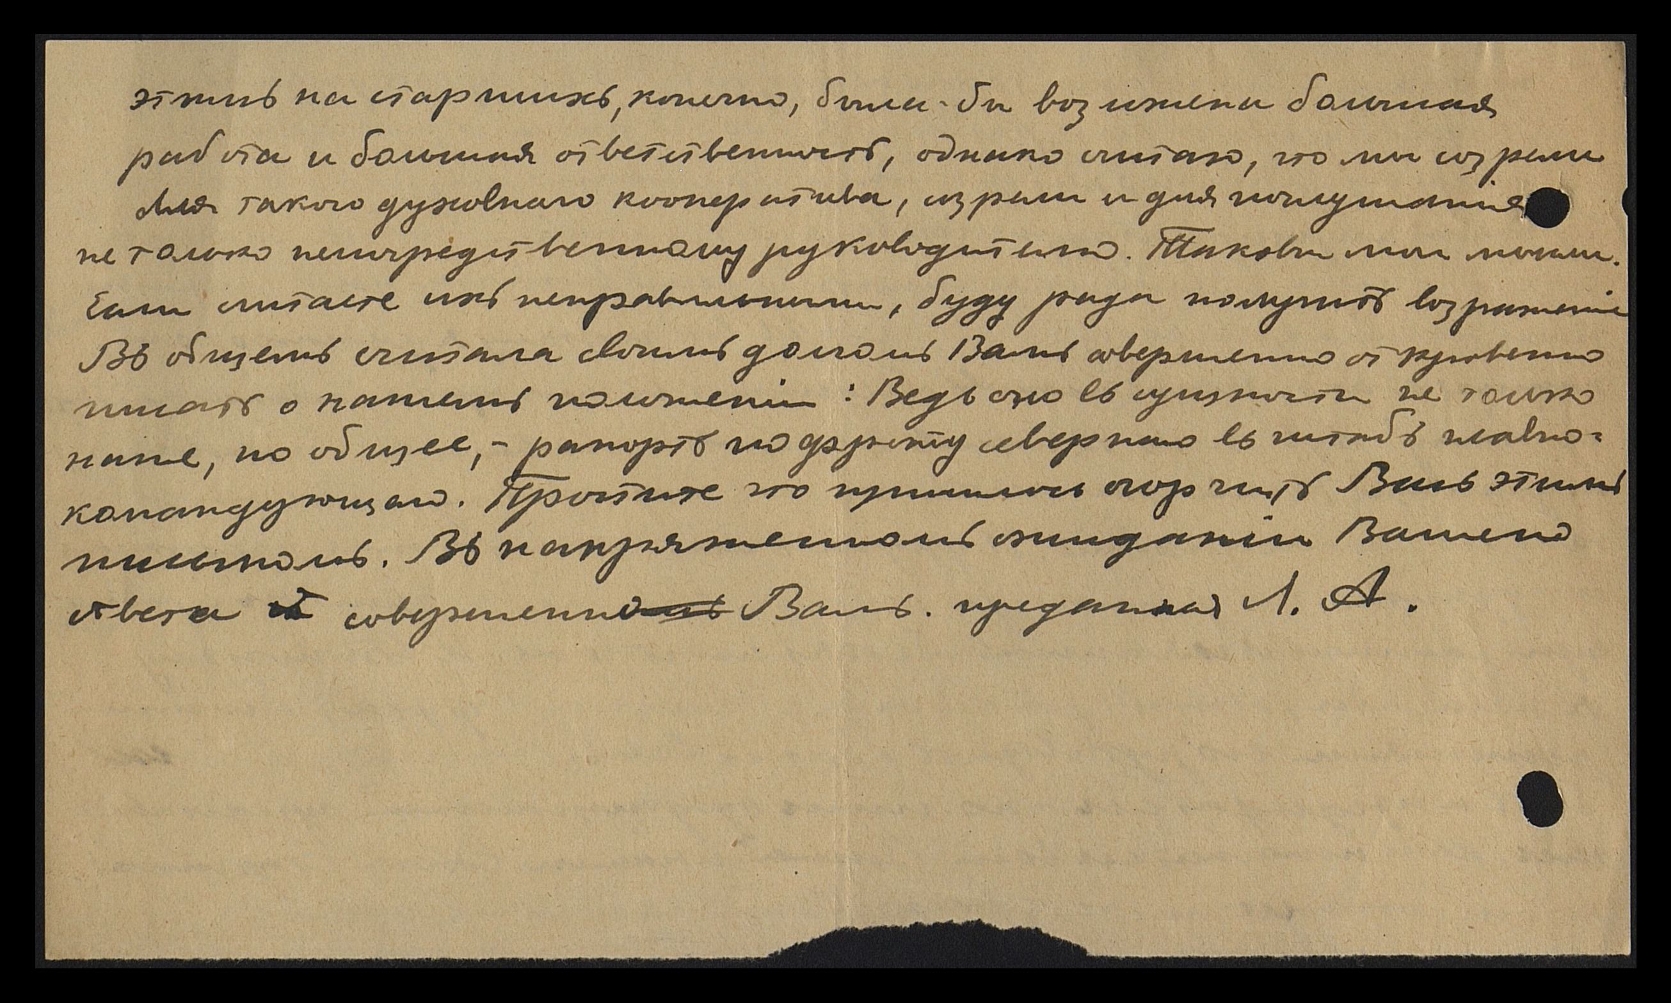 этимъ на старшихъ, конечно, была-бы возложена большая
работа и большая ответственность, однако считаю, что мы созрели
для такого духовнаго кооператива, созрели и для послушанія
не только непосредственному руководителю. Таковы мои мысли.
Если считаете ихъ неправильными, буду рада получить возраженіе
Въ общемъ считала своимъ долгомъ Вамъ совершенно откровенно
писать о нашемъ положеніи: Ведь оно въ сущности не только
наше, но общее, - рапортъ по фронту севернаго въ штабъ главно-
командующаго. Простите что пришлось огорчить Васъ этимъ
письмомъ. Въ напряженномъ ожиданіи Вашего
ответа совершенно Вамъ. преданная Л. А.